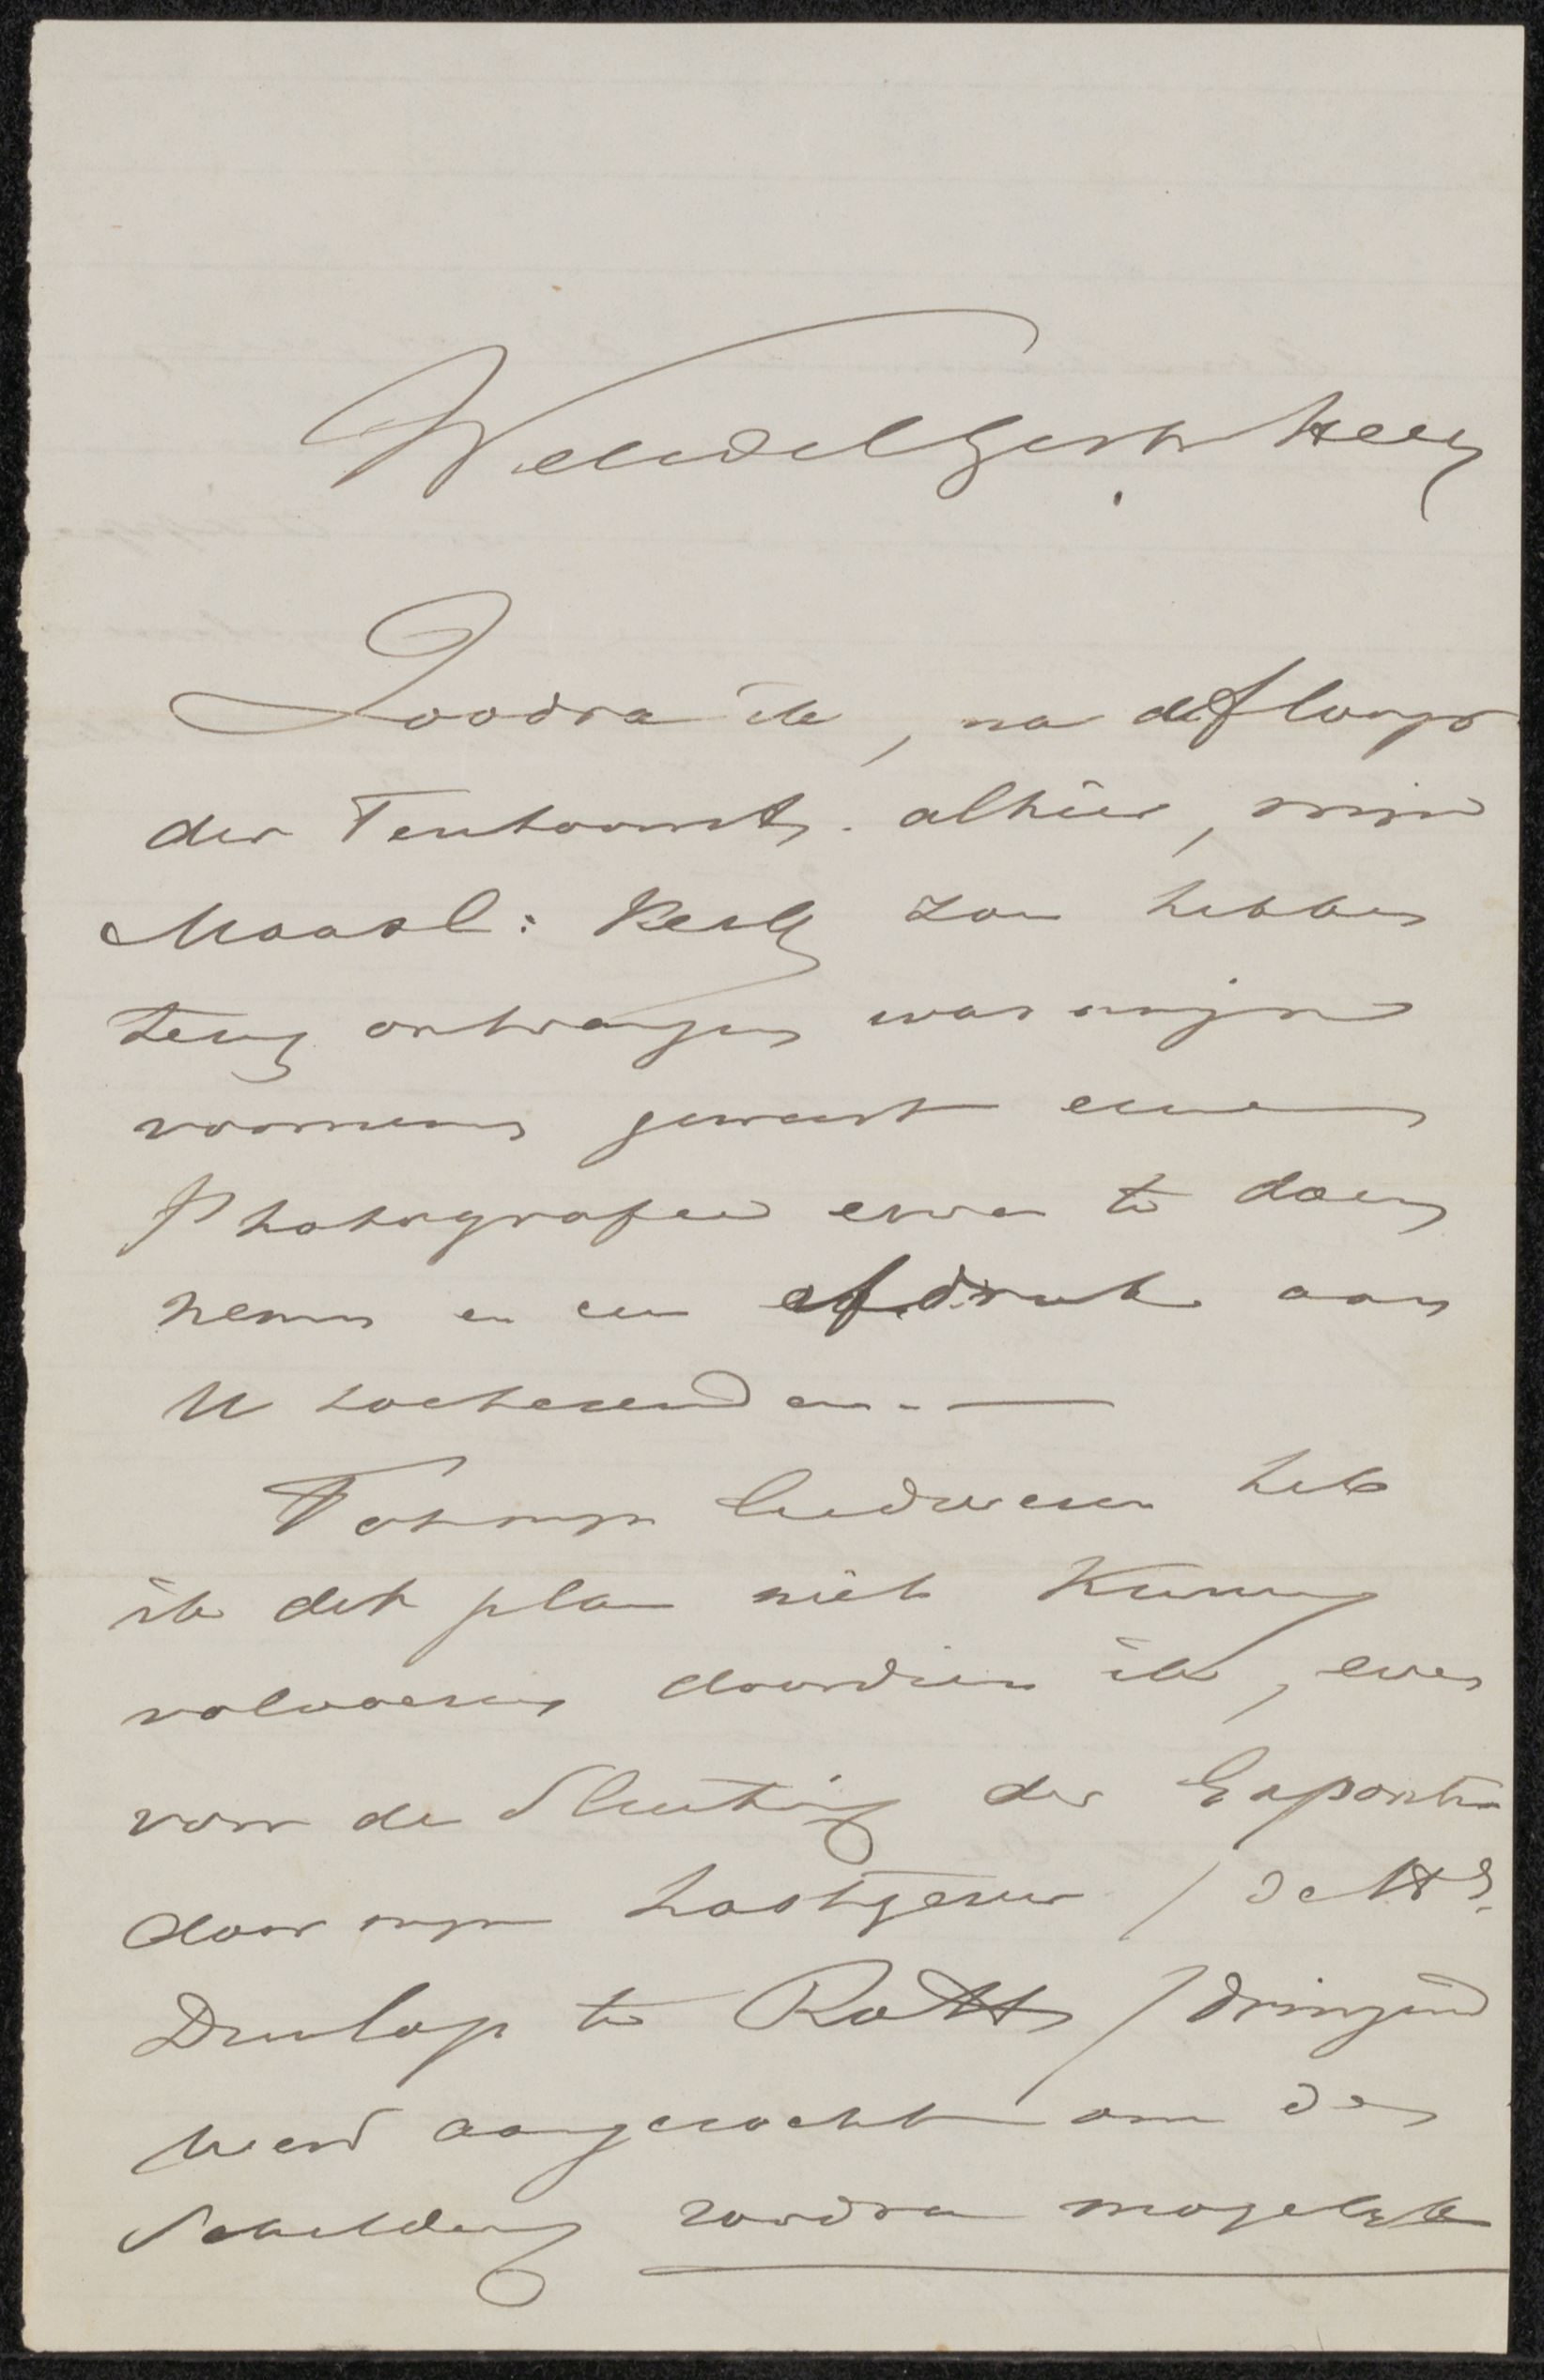 WelEdelGeb. Heer
Zoodra ik, na afloop
der Tentoonst. alhier, mijn
Maasl: Kerk zou hebben
terug ontvangen was mijn
voornemen geweest eene
Photografie ervan te doen
nemen en een afdruk aan
U toetezenden. —
Tot mijn leedwezen heb
ik dit plan niet kunnen
volvoeren doordien ik, even
voor de Sluiting der Expositie
door mijn lastgever / de Hr.
Dunlop te Rott / dringend
werd aangezocht om de
Schilderij zoodra mogelijk